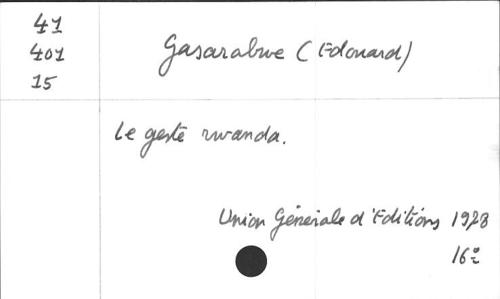 41
401
15
Gasarabwe (Edouard)
Le geste rwanda.
Union Générale d'Editions 1978
16º